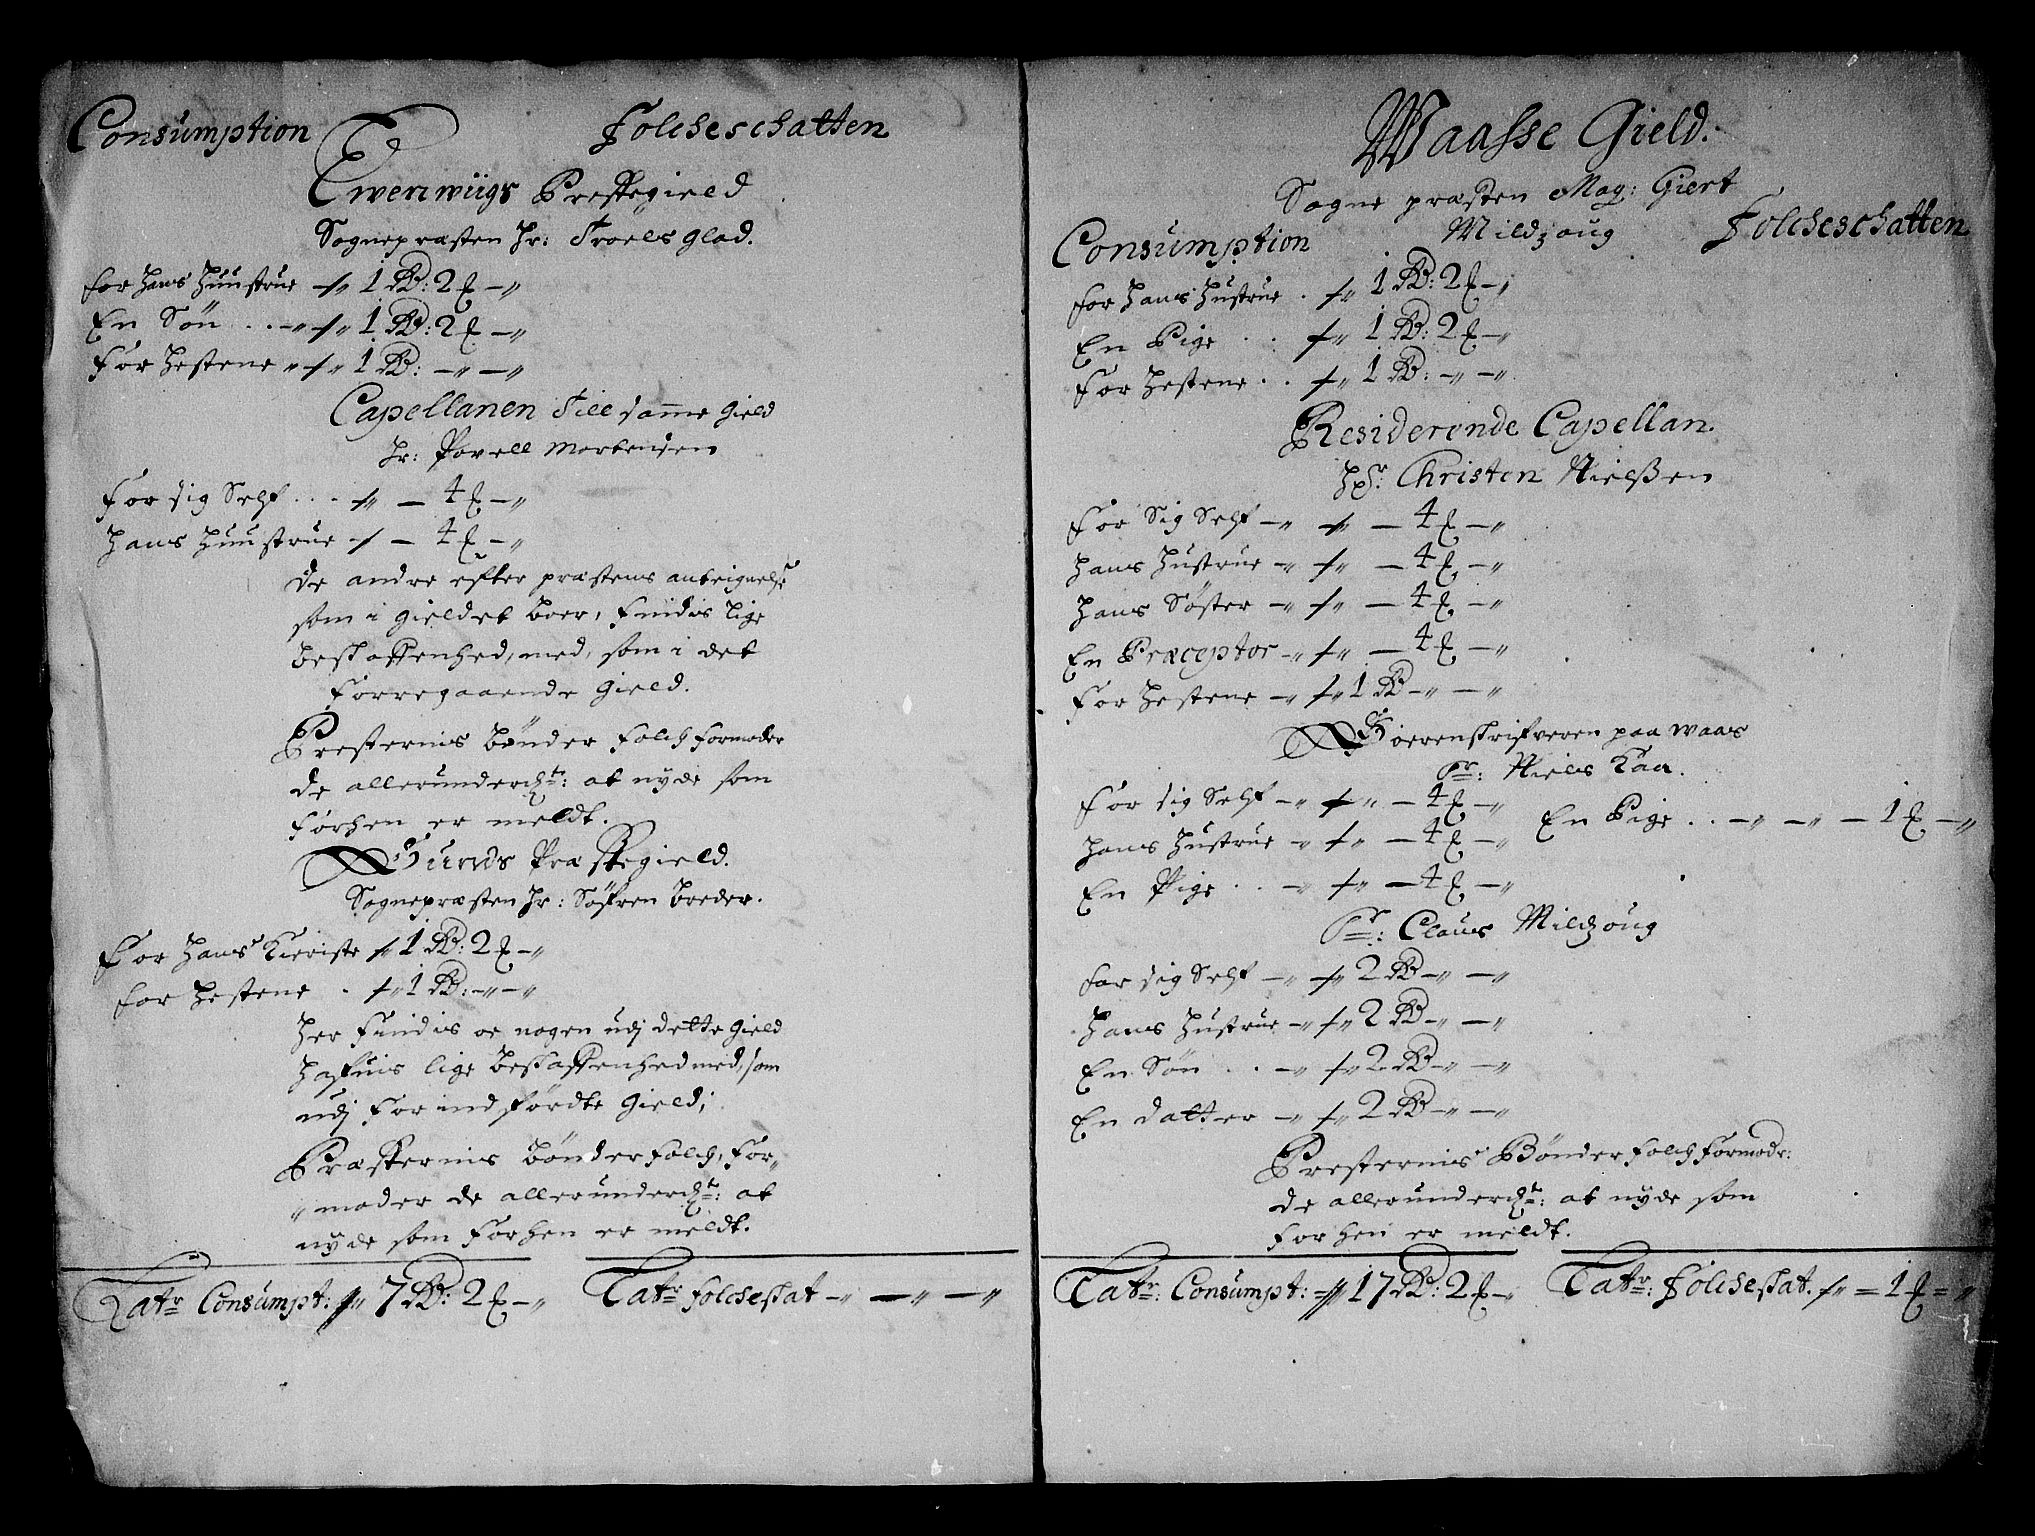 Consumption Folcheschatten
Ewenwiigs Prestegield
Sognepræsten Hr: Troels Glad.
For Hans Huustrue -/-" 1 Rd: 2 ß -"
En Søn . . -"-/-" 1 Rd: 2 ß -"
For Hestene "-/-" 1 Rd: -" -"
Capellanen Till samme Gield
Hr: Povell Mortensen
For sig Self . . . -/-" - 4 ß -"
Hans Huustrue -/- - 4 ß -"
De andre efter præstens anteignelse
som i Gieldet boer, Findis lige
beskaffenhed, med, som i det
Forregaaende Gield.
Presternis bønder Folch formoder
de allerunderd: at nyde som
Førhen er meldt.
Sunds Præstegield.
Sognepræsten Hr: Søfren Breder.
For Hans Kieriste -/-" 1 Rd: 2 ß -"
For Hestene . -/-" 1 Rd: -" -"
Her Findis oc nogen udj dette Gield
Hafuis lige beskaffenhed med, som
udj For indførdte Gield;
Præsternis bønder Folch, For-
"moder de allerunderd: at
nyde som Forhen er meldt.
Latr Consumpt: -/-" 7 Rd: 2 ß -" Latr: Folcheskat -" -" -"
Waasse Gield.
Sogne præsten Mag: Giert
Mildzoug Folcheschatten
Consumption
For Hans Hustrue . -/-" 1 Rd: 2 ß -"
En Pige . . -/-" 1 Rd: 2 ß -"
For Hestene . . -/-" 1 Rd: -" -"
Residerende Capellan.
Hr: Christen Nielßen
For Sig Self -" -/-" - 4 ß -"
Hans Hustrue -" -/-" - 4 ß -"
Hans Søster -" -/-" - 4 ß -"
En Præceptor -" -/-" - 4 ß -"
For Hestene -" -/-" 1 Rd -" -"
Sorenskrifveren paa Waas
Sr: Niels Kaa.
For sig Self -" -/-" - 4 ß -" En Pige . . -" -" - 1 ß -"
Hans Hustrue -" -/-" - 4 ß -"
En Pige . . -" -/-" - 4 ß -"
Sr: Claus Mildzoug
For sig Self -" -/-" 2 Rd -" -"
Hans Hustrue -" -/-" 2 Rd -" -"
En Søn . . -" -/-" 2 Rd -" -"
En Datter -" -/-" 2 Rd -" -"
Presternis Bønder Folch Formodr:
de allerunderd: at nyde som
Forhen er meldt.
Latr: Consumpt: -/-" 17 Rd: 2 ß -" Latr: Folcheskat. -/-" - 1 ß - "